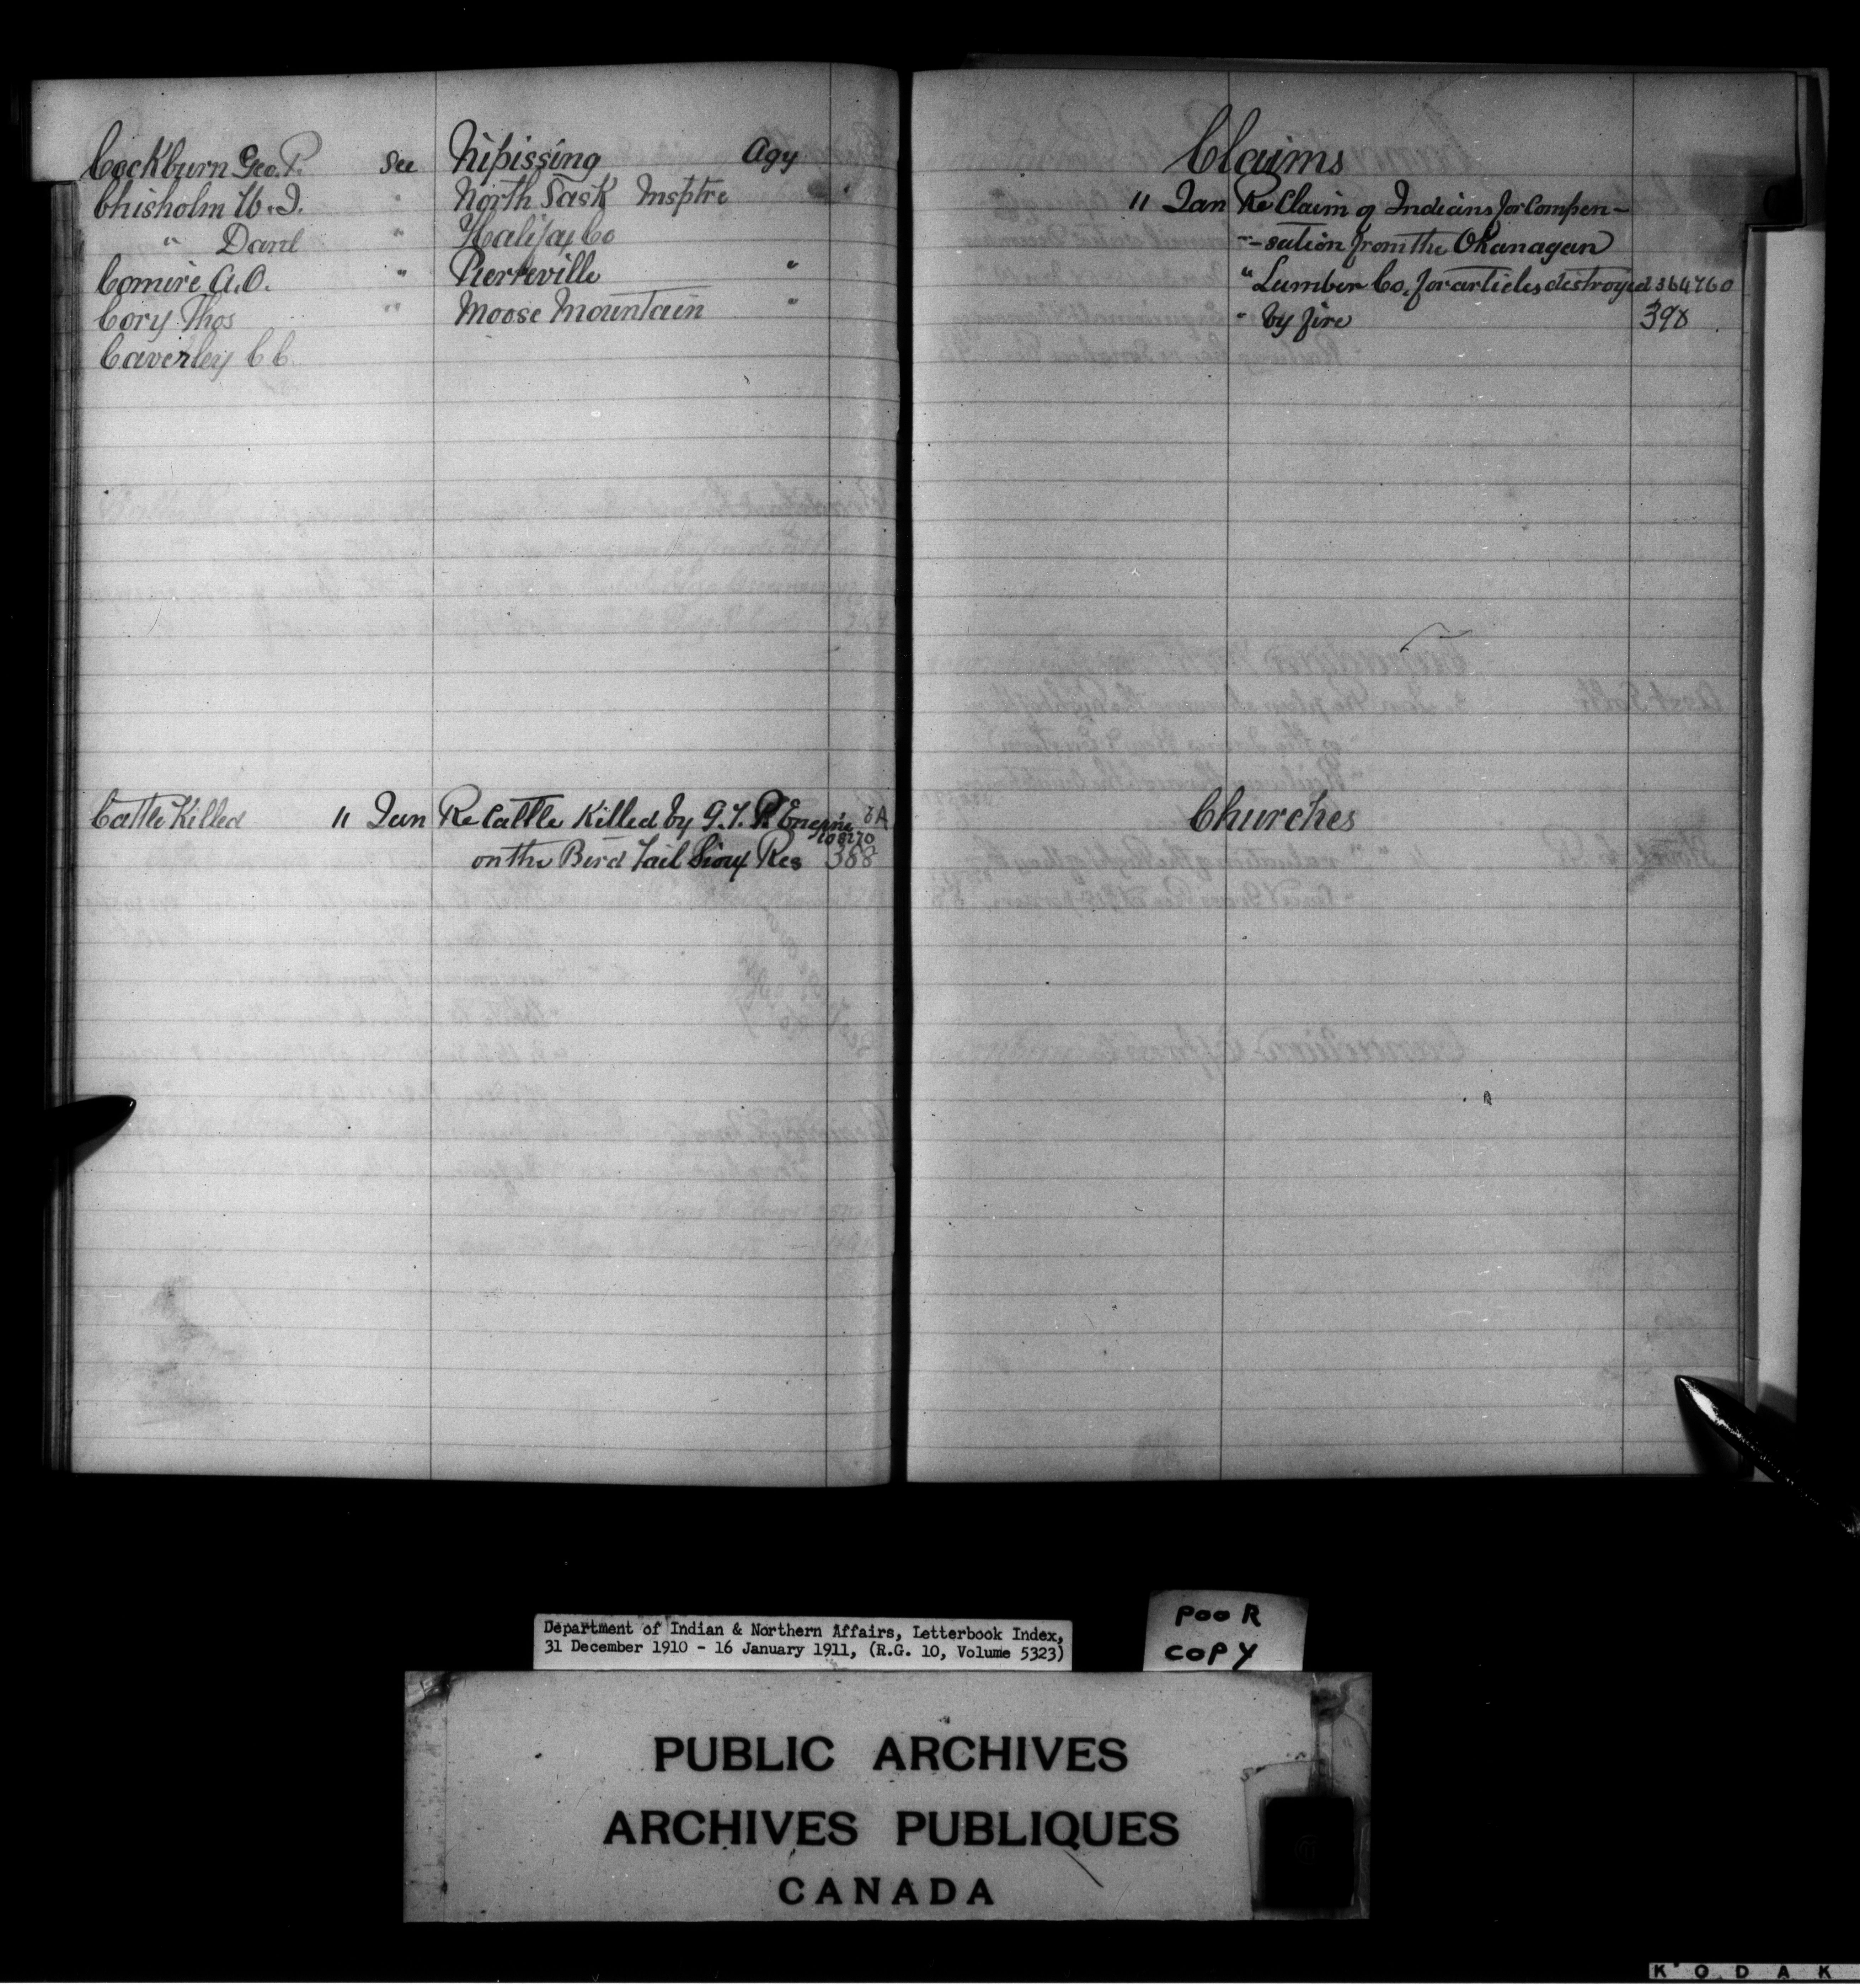 Cockburn Geo. P. See Nipissing Agy
Chisholm W. J. " North Sask Insptre
" Danl " Halifax Co
Comire A. O. " Pierreville "
Cory Thos " Moose Mountain "
Caverley C C.
Cattle Killed 11 Jan Re Cattle Killed by G. T. P. Engine 8A
108270
on the Bird Tail Sioux Res 388
Claims
11 Jan Re Claim of Indians for Compen-
"-sation from the Okanagan
" Lumber Co. for articles destroyed 364760
" by fire 398
Churches
Department of Indian & Northern Affairs, Letterbook Index,
31 December 1910 - 16 January 1911, (R.G. 10, Volume 5323)
POOR
COPY
PUBLIC ARCHIVES
ARCHIVES PUBLIQUES
CANADA
KODAK